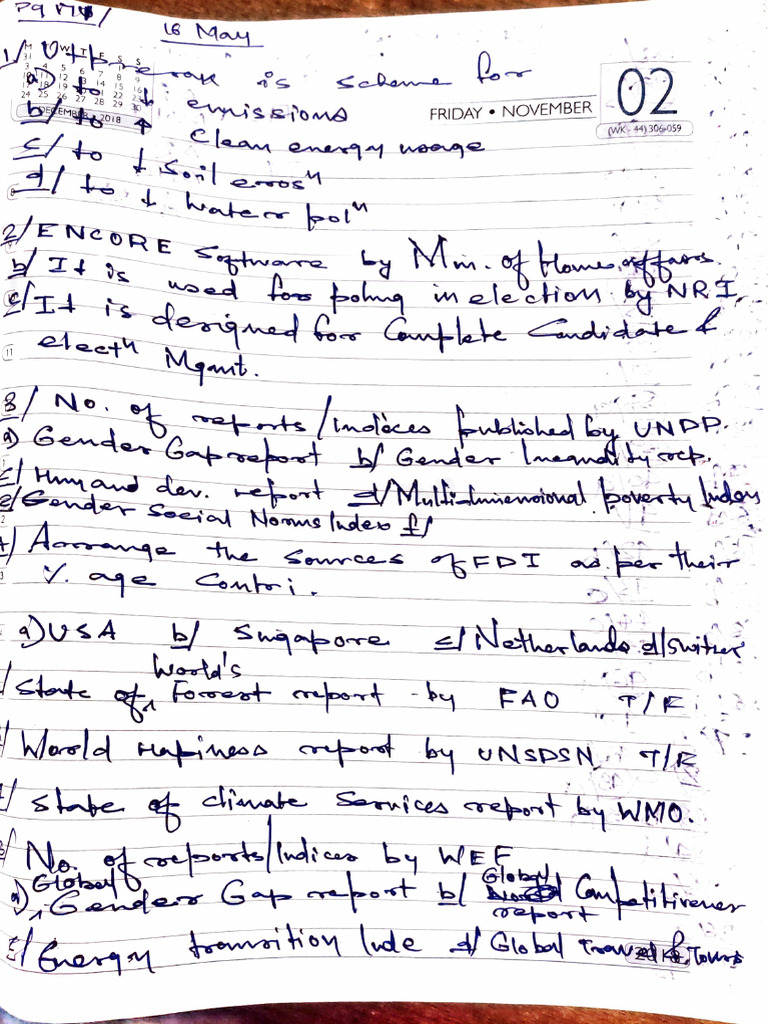 Pg 178/
18 May
1/ Uttprerak is scheme for
FRIDAY • NOVEMBER 02
(WK - 44) 306-059
DECEMBER 2018
a) to ↓ emissions
b/ to ↑ Clean energy usage
c/ to ↓ Soil erosⁿ
d/ to ↓ water polⁿ
2/ ENCORE Software by Min. of Home affairs.
b/ It is used for poling in election by NRI.
c/ It is designed for Complete Candidate &
electⁿ Mgmt.
3/ No. of reports/indices published by UNDP.
a) Gender Gap report b/ Gender Inequality rep.
c/ Human dev. report d/ Multi-dimensional poverty Index
e/ Gender Social Norms Index f/
4/ Arrange the sources of FDI as per their
% age Contri.
a) USA b/ Singapore c/ Netherlands d/ Switzer
/ State of World's Forrest report - by FAO T/F
/ World Hapiness report by UNSDSN T/F
/ State of climate Services report by WMO.
/ No. of reports/Indices by WEF
a) Global Gender Gap report b/ Global Competitiveness
report
c/ Energy transition Inde d/ Global Travel & Tours